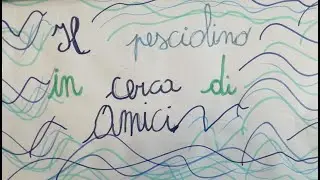 Il pesciolino
in cerca di
Amici